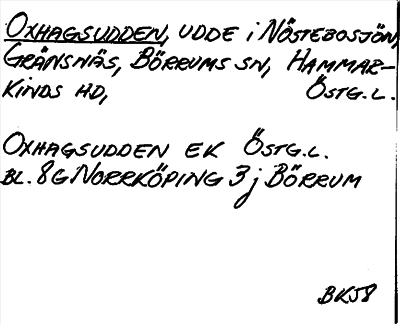 OXHAGSUDDEN, UDDE i NÖSTEBOSJÖN,
GRÄNSNÄS, BÖRRUMS SN, HAMMAR-
KINDS HD, ÖSTG.L.
OXHAGSUDDEN EK ÖSTG.L.
BL. 8G NORRKÖPING 3j BÖRRUM
BK58